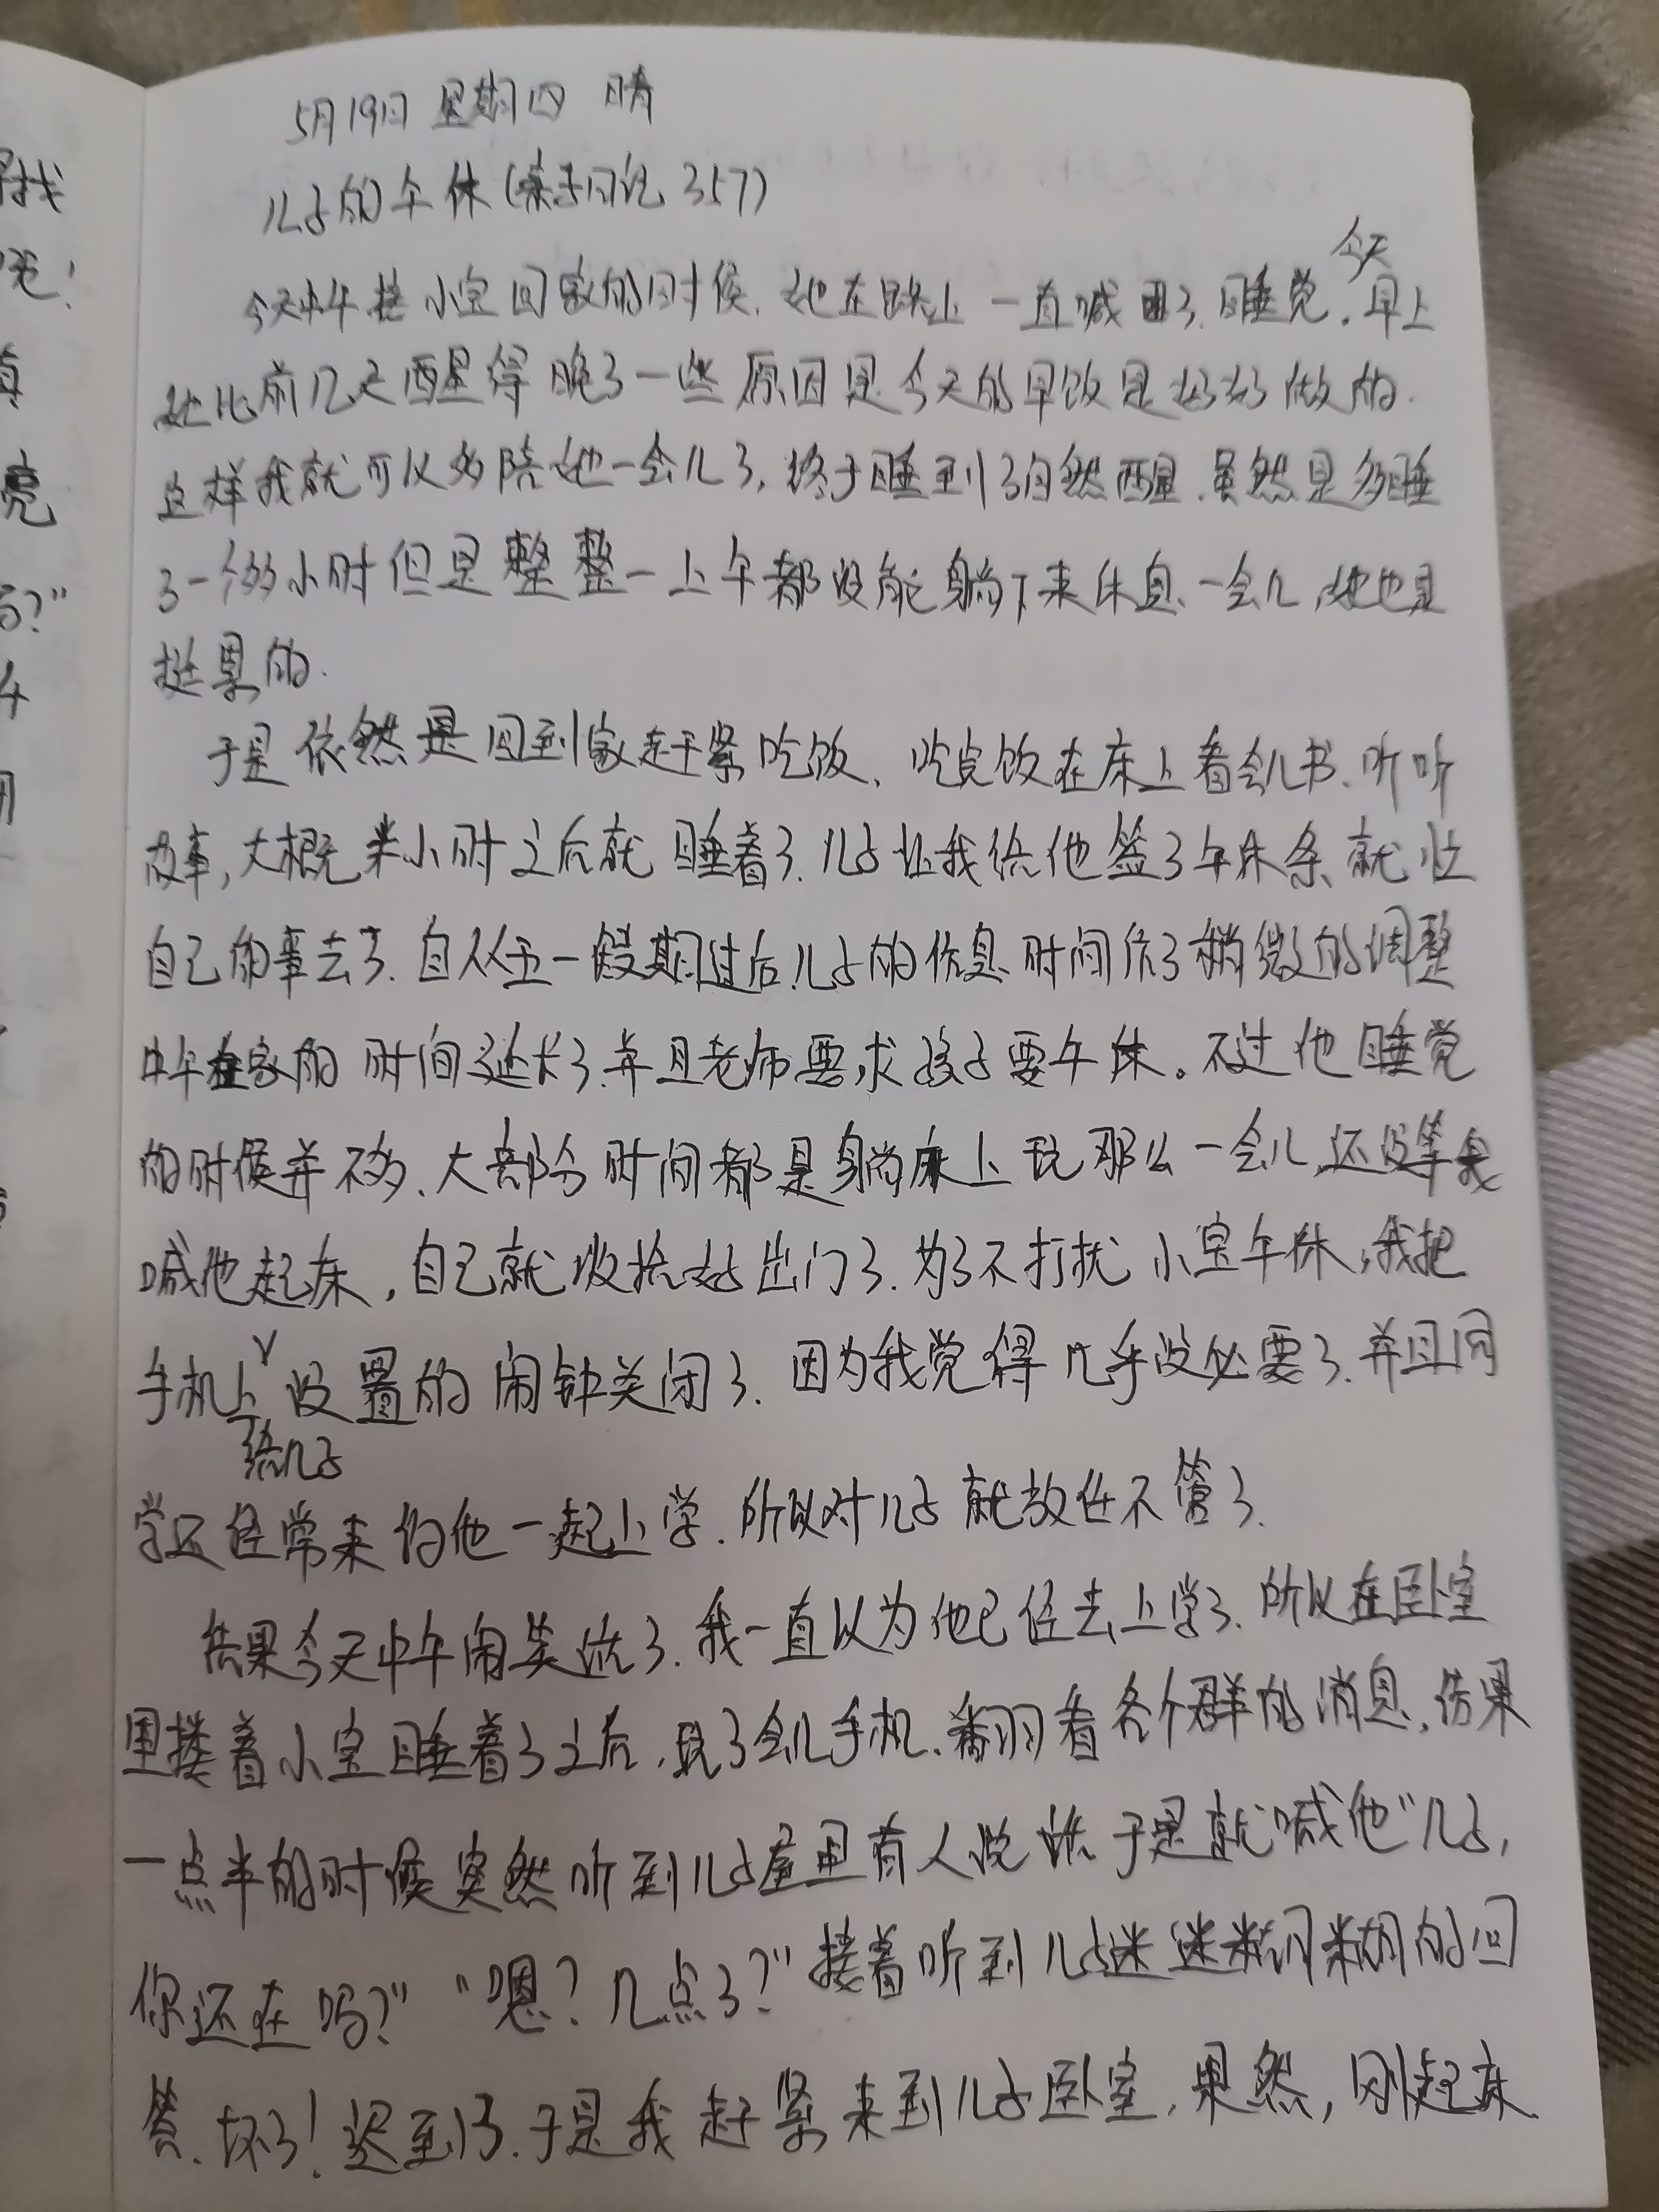 5月19日 星期四 晴
儿子的午休(亲子日记357)
今天中午接小宝回家的时候,她在路上一直喊困了,睡觉。今天早上
她比前几天醒得晚了一些原因是今天的早饭是妈妈做的.
这样我就可以多陪她一会儿了,终于睡到了自然醒.虽然是多睡
了一个多小时但是整整一上午都没能躺下来休息一会儿,她也是
挺累的.
于是依然是回到家赶紧吃饭、吃完饭在床上看会儿书、听听
故事,大概半小时之后就睡着了.儿子让我给他签了午休条就忙
自己的事去了.自从五一假期过后儿子的作息时间作了稍微的调整
中午在家的时间延长了.并且老师要求孩子要午休。不过他睡觉
的时候并不多、大部分时间都是躺床上玩那么一会儿,还没等我
喊他起床,自己就收拾好出门了.为了不打扰小宝午休,我把
手机上给儿子设置的闹钟关闭了.因为我觉得几乎没必要了.并且同
学还经常来约他一起上学.所以对儿子就放任不管了.
结果今天中午闹笑话了.我一直以为他已经去上学了.所以在卧室
里搂着小宝睡着了之后,玩了会儿手机、翻看各个群的消息,结果
一点半的时候突然听到儿子屋里有人说话于是就喊他“儿子,
你还在吗?”“嗯?几点了?”接着听到儿子迷迷糊糊的回
答.坏了!迟到了.于是我赶紧来到儿子卧室,果然,刚起床
找
亮
?”